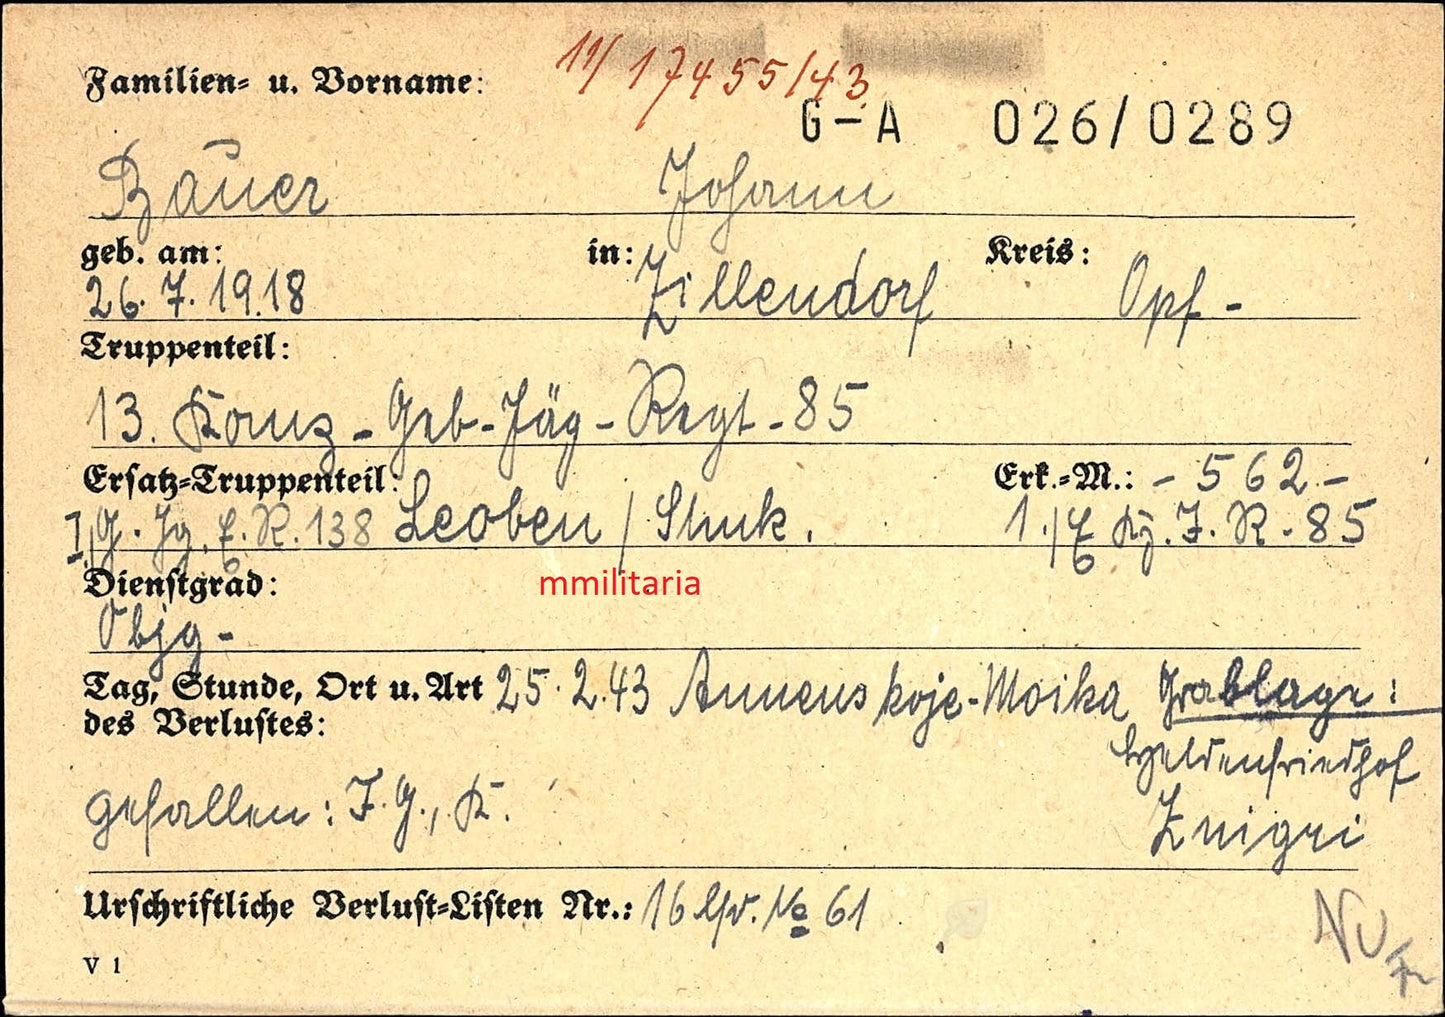 11/17455/43
Familien- u. Vorname:
G-A 026/0289
Bauer Johann
geb. am: in: Kreis:
26.7.1918 Zillendorf Opf-
Truppenteil:
13. Komp-Geb-Jäg-Regt-85
Ersatz-Truppenteil: Erk.-M.: -562-
I/G.Jg.E.R.138 Leoben / Stuk. 1./E Kp.I.R-85
Dienstgrad:
mmilitaria
Objg-
Tag, Stunde, Ort u. Art 25.2.43 Annenskoje-Moika Grablage:
des Verlustes:
Heldenfriedhof
gefallen: I.G., K.
Znigri
Urschriftliche Verlust-Listen Nr.: 16 lfd. No 61
V 1